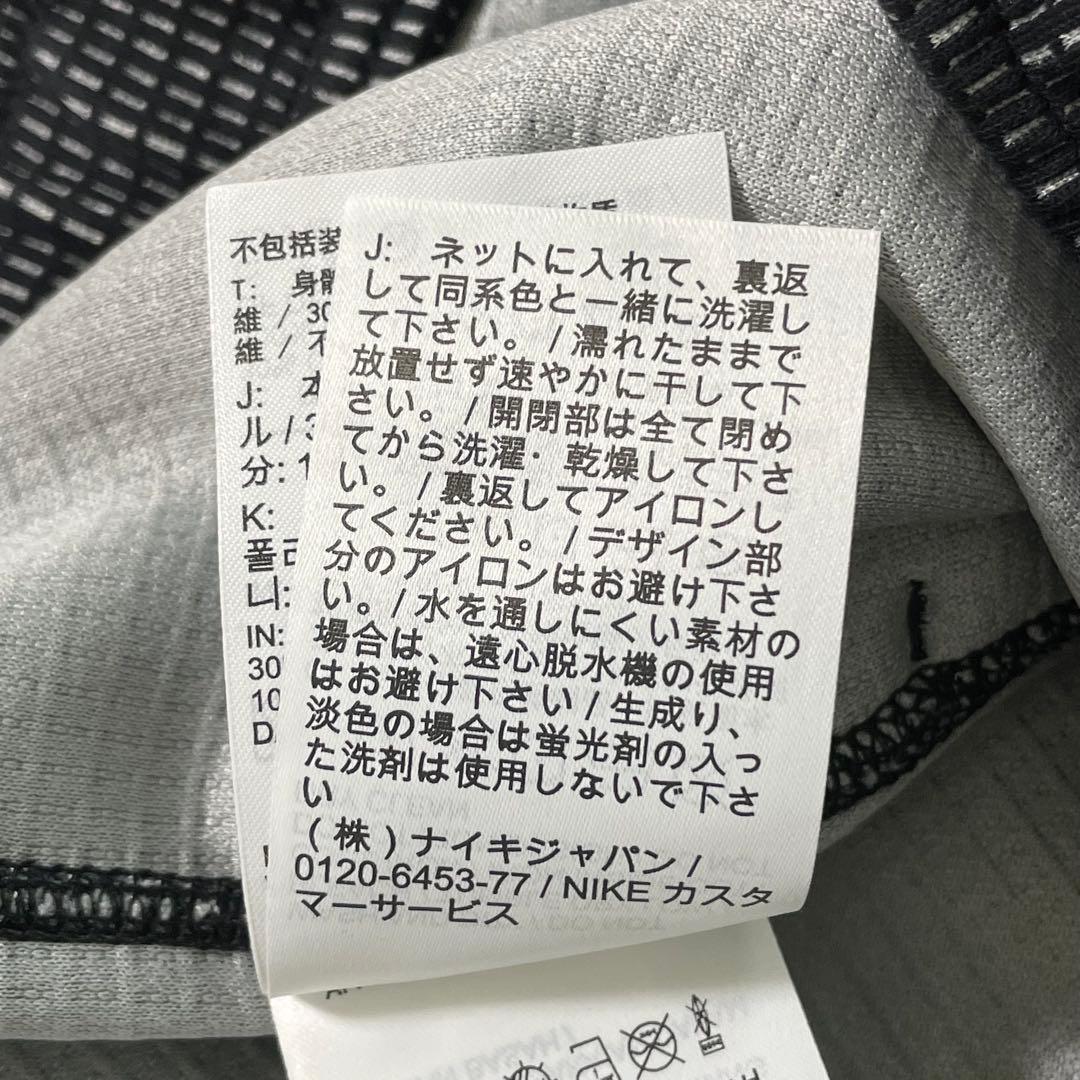 不包括装
T: 身
維 / 30
維 / 不
J: 本
ル / 3
分: 1
K:
폴리
니:
IN:
30
10
D
J: ネットに入れて、裏返
して同系色と一緒に洗濯し
て下さい。/濡れたままで
放置せず速やかに干して下
さい。/開閉部は全て閉め
てから洗濯・乾燥して下さ
い。/裏返してアイロンし
てください。/デザイン部
分のアイロンはお避け下さ
い。/水を通しにくい素材の
場合は、遠心脱水機の使用
はお避け下さい/生成り、
淡色の場合は蛍光剤の入っ
た洗剤は使用しないで下さ
い
(株)ナイキジャパン/
0120-6453-77 / NIKE カスタ
マーサービス